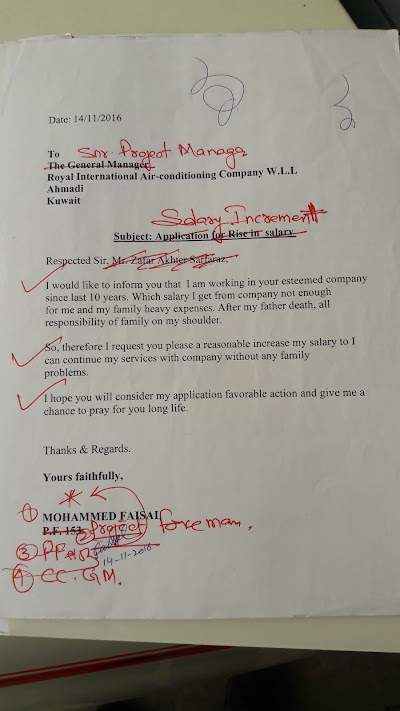 Date: 14/11/2016
To Snr. Project Manager
The General Manager
Royal International Air-conditioning Company W.L.L
Ahmadi
Kuwait
Salary Increment
Subject: Application for Rise in salary
Respected Sir, Mr. Zafar Akhter Sarfaraz,
I would like to inform you that I am working in your esteemed company
since last 10 years. Which salary I get from company not enough
for me and my family heavy expenses. After my father death, all
responsibility of family on my shoulder.
So, therefore I request you please a reasonable increase my salary to I
can continue my services with company without any family
problems.
I hope you will consider my application favorable action and give me a
chance to pray for you long life.
Thanks & Regards.
Yours faithfully,
① MOHAMMED FAISAL
P.F. 153 ② Project foreman.
③ PF
14-11-2016
④ CC. GM.